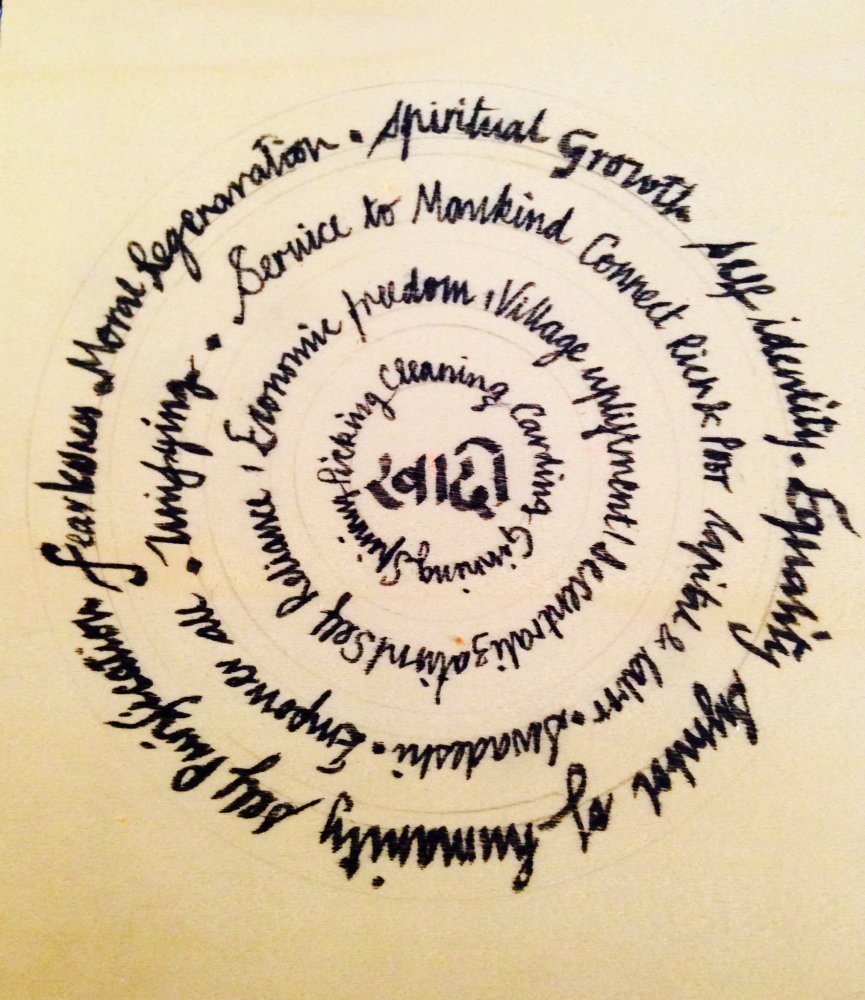 Spiritual Growth self identity. Equality Symbol of humanity self Purification Moral Regenaration •
Service to Mankind Connect Rich & Poor Capital & • Swadeshi • Empower all • Unifying •
Economic freedom, Village upliftment / decentralization / Self Reliance,
Picking Cleaning Carding Ginning Spinning
खादी